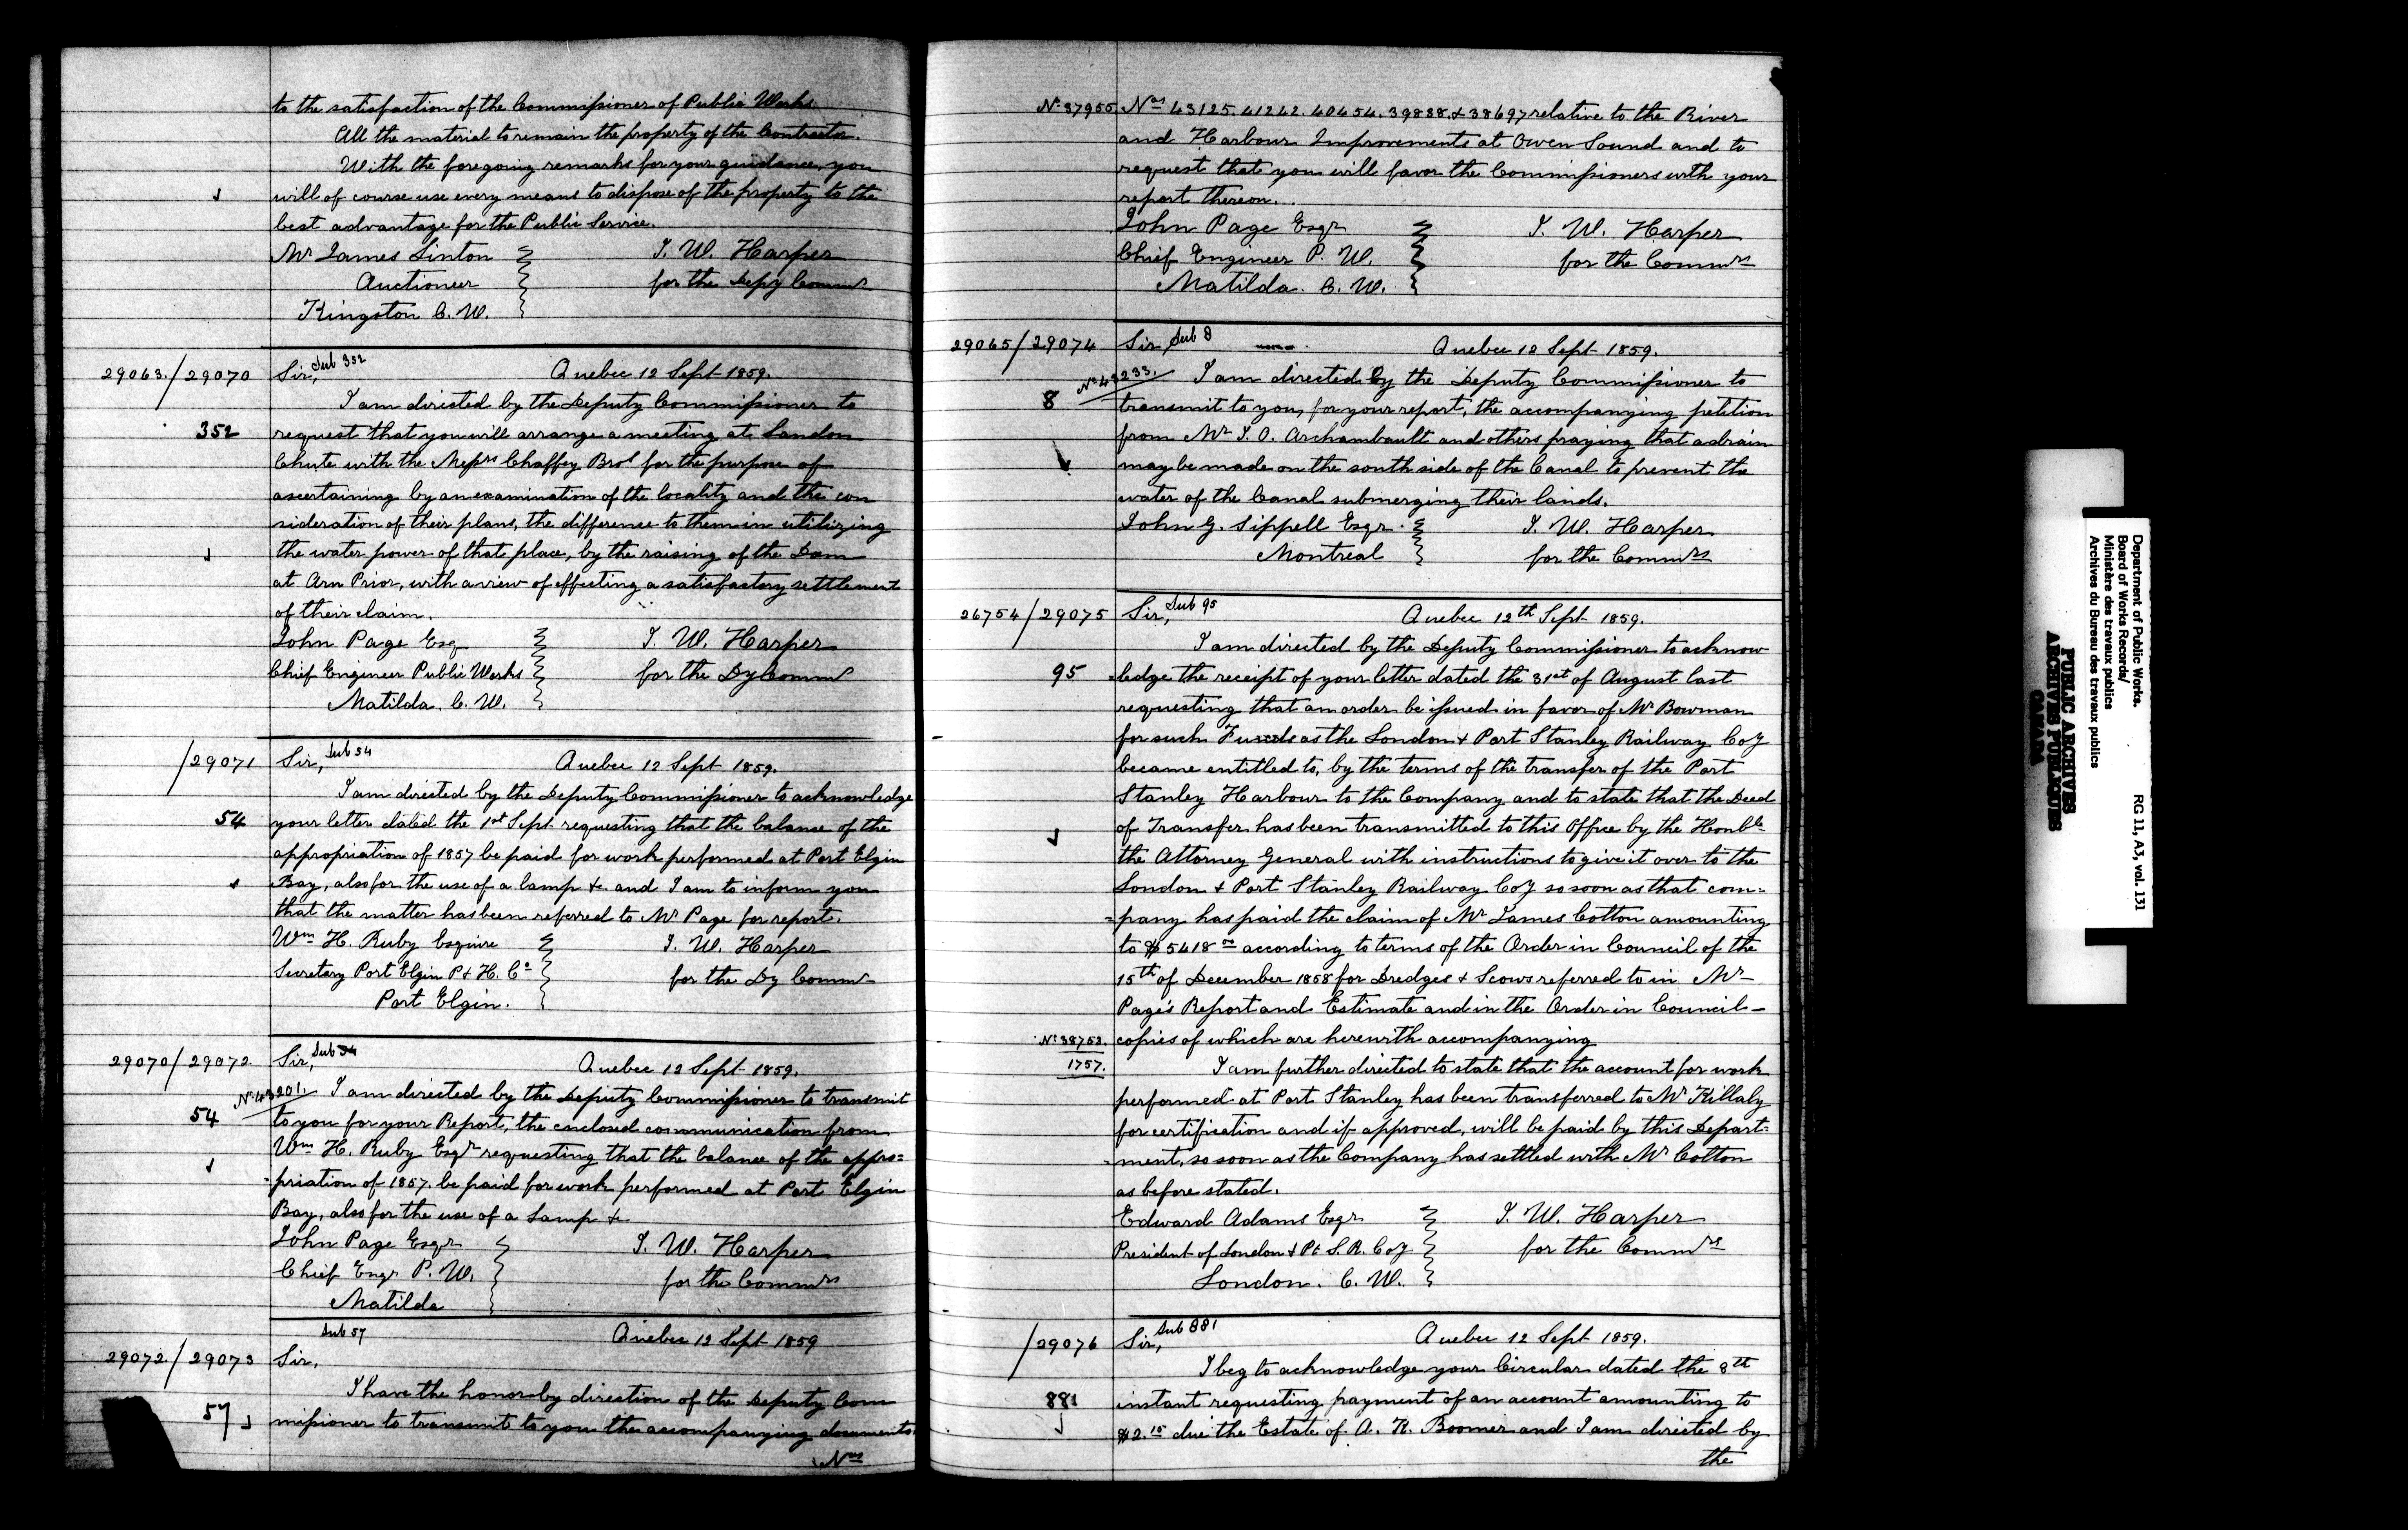 to the satisfaction of the Commissioner of Public Works.
All the material to remain the property of the Contractor.
With the foregoing remarks for your guidance, you
will of course use every means to dispose of the property to the
best advantage for the Public Service.
Mr James Linton T. W. Harper
Auctioneer for the Depy Commr
Kingston C. W.
29063./29070 Sir, Sub 352 Quebec 12 Sept 1859.
I am directed by the Deputy Commissioner to
352 request that you will arrange a meeting at London
Chute with the Messrs Chaffey Bros for the purpose of
ascertaining by an examination of the locality and the con
sideration of their plans, the difference to them in utilizing
the water power of that place, by the raising of the Dam
at Arn Prior, with a view of effecting a satisfactory settlement
of their claim.
John Page Esq T. W. Harper
Chief Engineer Public Works for the Dy Commr
Matilda. C. W.
/29071 Sir, Sub 54 Quebec 12 Sept 1859.
I am directed by the Deputy Commissioner to acknowledge
54 your letter dated the 1st Sept requesting that the balance of the
appropriation of 1857 be paid for work performed at Port Elgin
Bay, also for the use of a lamp &c and I am to inform you
that the matter has been referred to Mr Page for report.
Wm H. Ruby Esquire T. W. Harper
Secretary Port Elgin P & H. Co for the Dy Commr
Port Elgin.
29070/29072 Sir, Sub 54 Quebec 12 Sept 1859.
No 43201. I am directed by the Deputy Commissioner to transmit
54 to you for your Report, the enclosed communication from
Wm H. Ruby Esqr requesting that the balance of the appro=
=priation of 1857 be paid for work performed at Port Elgin
Bay, also for the use of a Lamp &c
John Page Esqr T. W. Harper
Chief Engr P. W. for the Commrs
Matilda
Sub 57 Quebec 12 Sept 1859
29072./29073 Sir,
I have the honor by direction of the Deputy Com
57 missioner to transmit to you the accompanying documents
Nos
No 37955 Nos 43125. 41242. 40454. 39838. & 38697 relative to the River
and Harbour Improvements at Owen Sound and to
request that you will favor the Commissioners with your
report thereon.
John Page Esqr T. W. Harper
Chief Engineer P. W. for the Commrs
Matilda. C. W.
29065/29074 Sir, Sub 8 Quebec 12 Sept 1859.
No 43233. I am directed by the Deputy Commissioner to
8 transmit to you, for your report, the accompanying petition
from Mr J. O. Archambault and others praying that a drain
may be made on the south side of the Canal to prevent the
water of the Canal submerging their lands.
John G. Sippell Esqr. T. W. Harper
Montreal for the Commrs
26754/29075 Sir, Sub 95 Quebec 12th Sept 1859.
I am directed by the Deputy Commissioner to acknow
95 =ledge the receipt of your letter dated the 31st of August last
requesting that an order be issued in favor of Mr Bowman
for such Funds as the London & Port Stanley Railway Coy
became entitled to, by the terms of the transfer of the Port
Stanley Harbour to the Company and to state that the Deed
of Transfer has been transmitted to this Office by the Honble
the Attorney General with instructions to give it over to the
London & Port Stanley Railway Coy so soon as that com=
=pany has paid the claim of Mr James Cotton amounting
to $5418 00 according to terms of the Order in Council of the
15th of December 1858 for Dredges & Scows referred to in Mr
Page's Report and Estimate and in the Order in Council -
No 38753. copies of which are herewith accompanying
1757. I am further directed to state that the account for work
performed at Port Stanley has been transferred to Mr Killaly
for certification and if approved, will be paid by this Depart=
=ment, so soon as the Company has settled with Mr Cotton
as before stated.
Edward Adams Esqr T. W. Harper
President of London & Pt S. R. Coy for the Commrs
London. C. W.
/29076 Sir, Sub 881 Quebec 12 Sept 1859.
I beg to acknowledge your Circular dated the 8th
881 instant requesting payment of an account amounting to
$2.15 due the Estate of A. K. Boomer and I am directed by
the
Department of Public Works. RG 11, A3, vol. 131
Board of Works Records/
Ministère des travaux publics
Archives du Bureau des travaux publics
PUBLIC ARCHIVES
ARCHIVES PUBLIQUES
CANADA